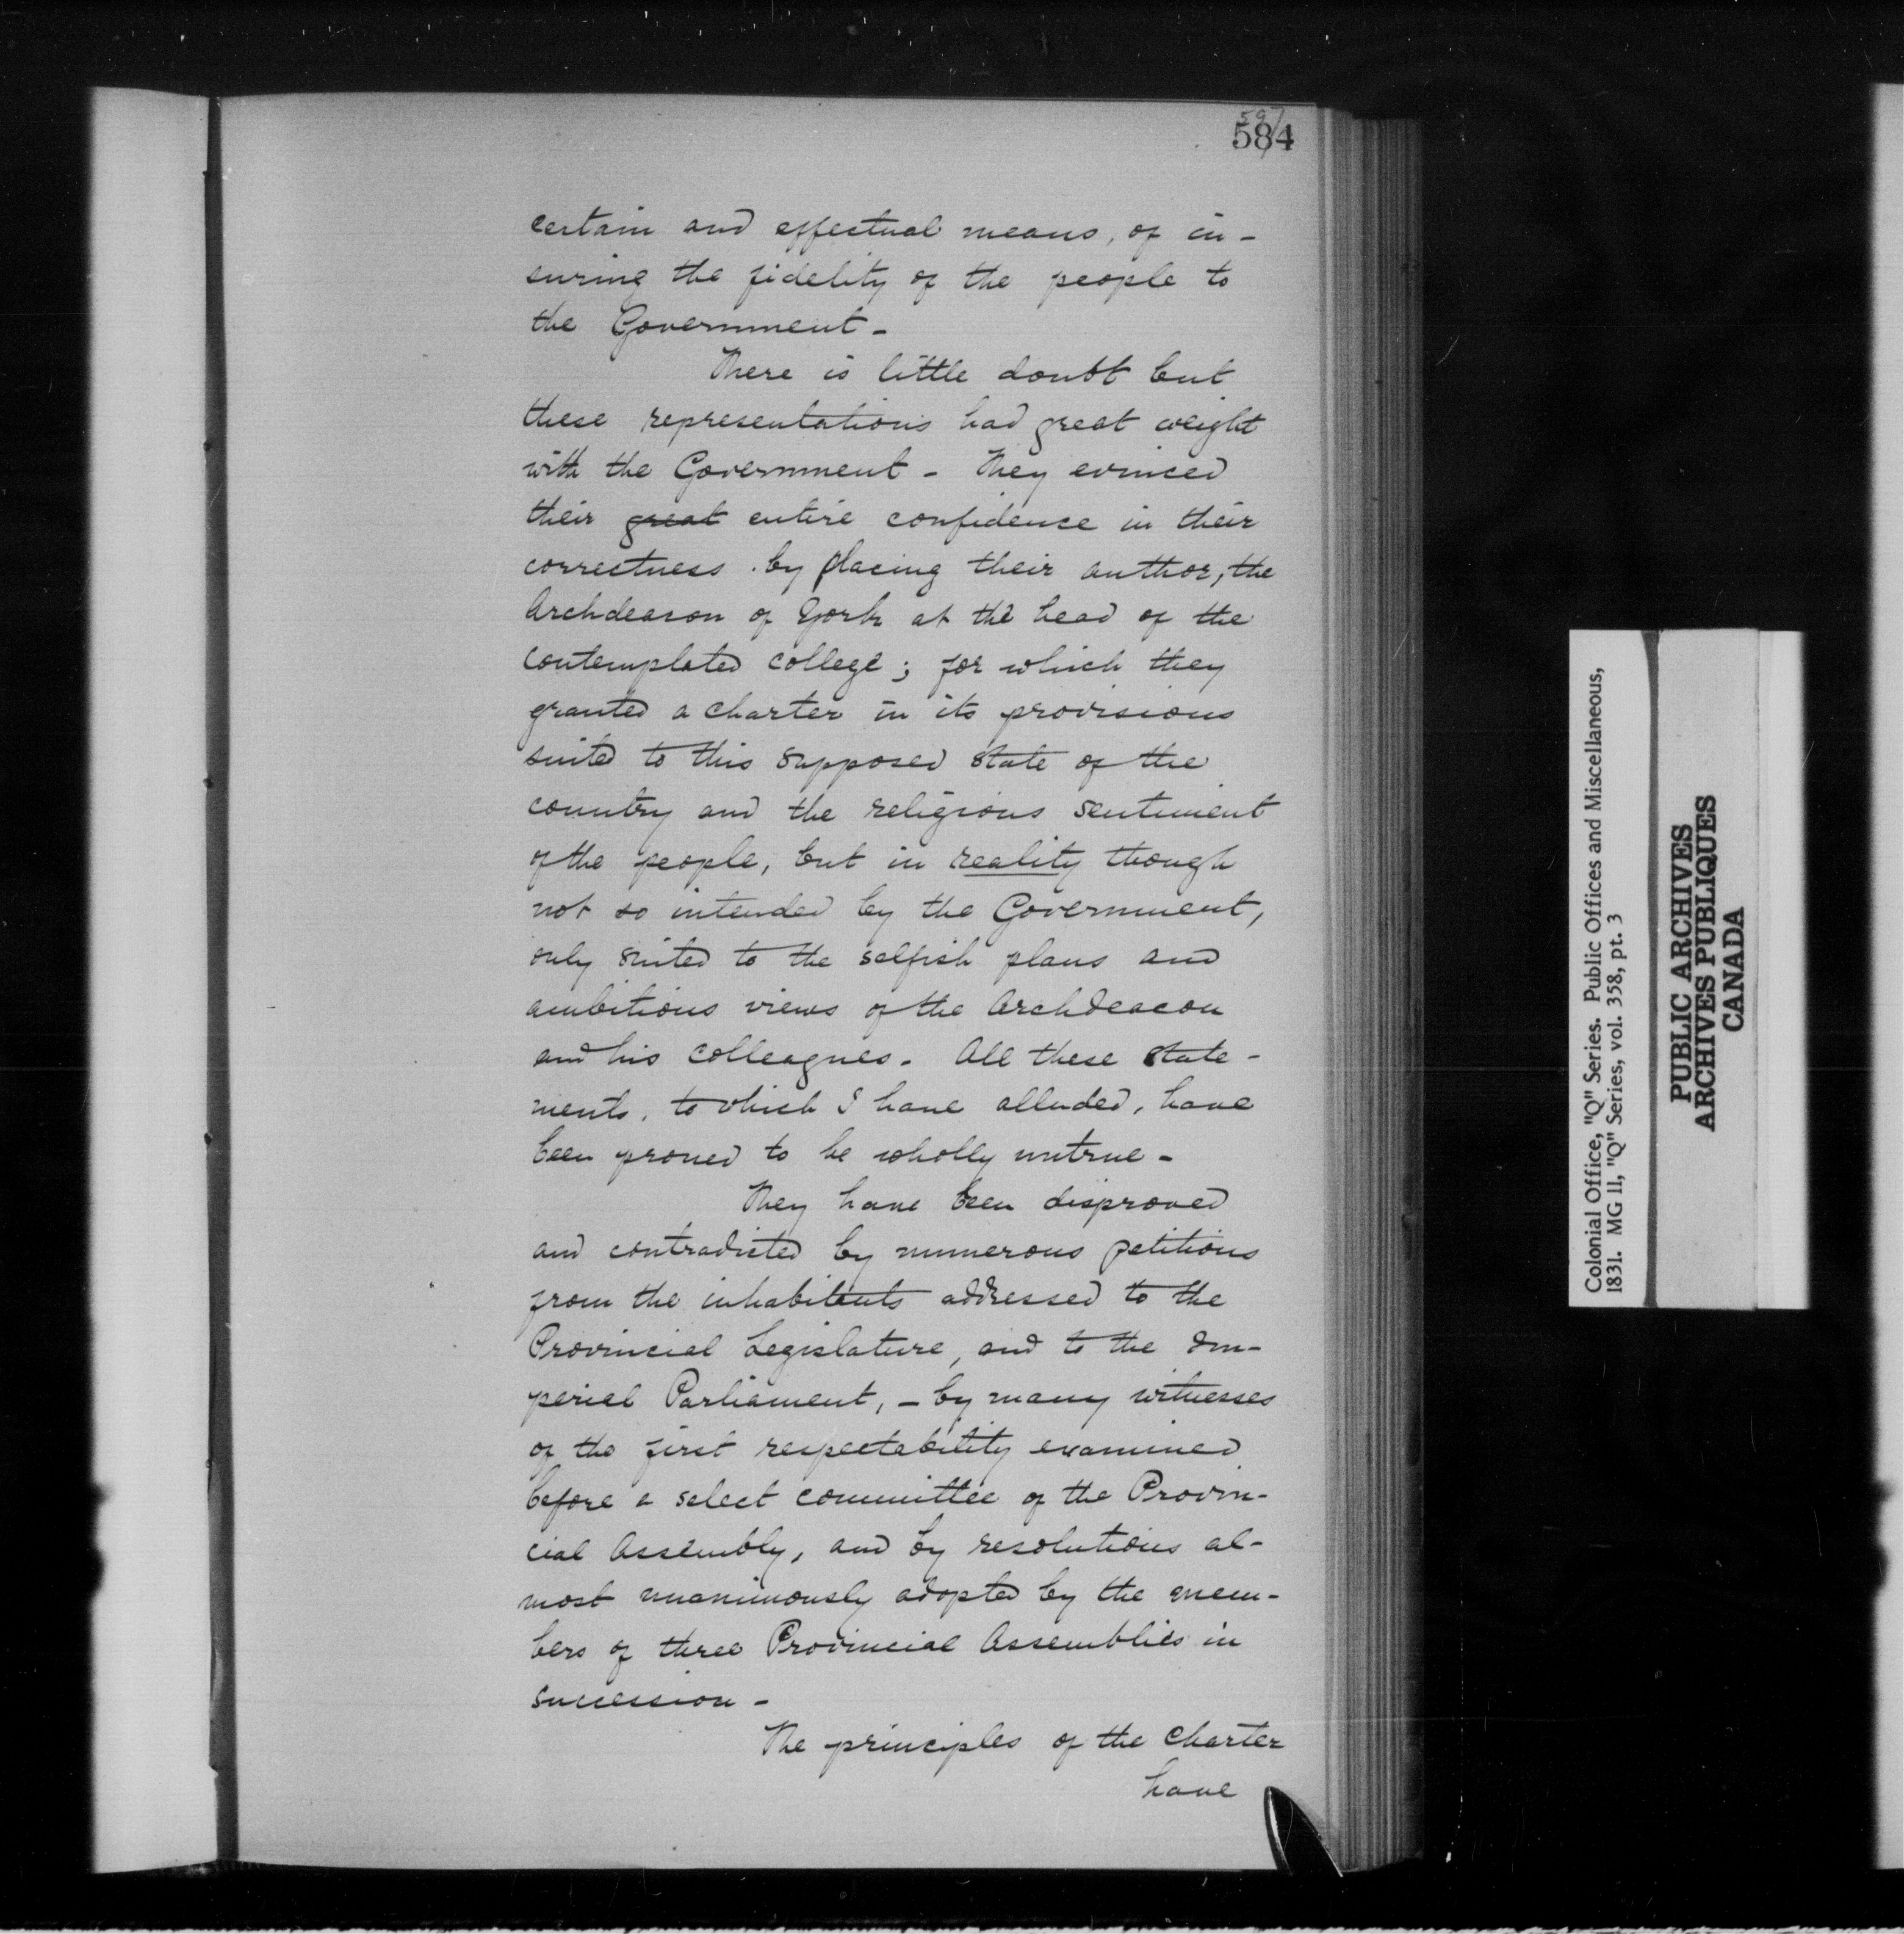 584
certain and effectual means, of in-
suring the fidelity of the people to
the Government -
There is little doubt but
these representations had great weight
with the Government - They evinced
their great entire confidence in their
correctness . by placing their author, the
Archdeacon of York at the head of the
contemplated college ; for which they
granted a charter in its provisions
suited to this supposed state of the
country and the religious sentiment
of the people, but in reality though
not so intended by the Government,
only suited to the selfish plans and
ambitious views of the Archdeacon
and his colleagues. All these state-
ments, to which I have alluded, have
been proved to be wholly untrue -
They have been disproved
and contradicted by numerous petitions
from the inhabitants addressed to the
Provincial Legislature, and to the Im-
perial Parliament, - by many witnesses
of the first respectability examined
before a select committee of the Provin-
cial Assembly, and by resolutions al-
most unanimously adopted by the mem-
bers of three Provincial Assemblies in
succession -
The principles of the Charter
have
Colonial Office, "Q" Series. Public Offices and Miscellaneous,
1831. MG 11, "Q" Series, vol. 358, pt. 3
PUBLIC ARCHIVES
ARCHIVES PUBLIQUES
CANADA